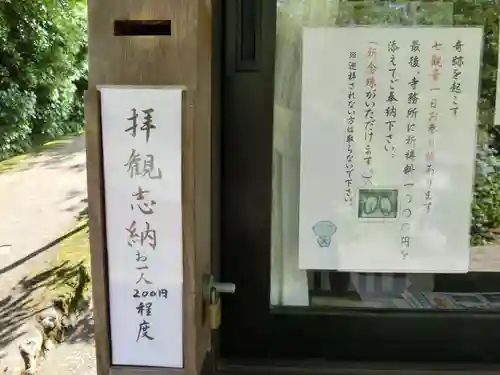 拝観志納お一人200円程度
奇跡を起こす
七観音一日お参り所あります
最後、寺務所に祈祷料一〇〇〇円
添えてご奉納下さい。
(祈念珠がいただけます。)
※巡拝されない方は取らないで下さい。